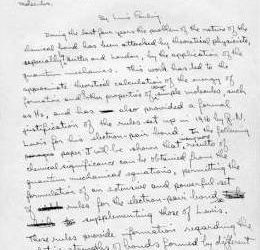 molecules.
By Linus Pauling
During the last four years the problem of the nature of the
chemical bond has been attacked by theoretical physicists,
especially Heitler and London, by the application of the
quantum mechanics. This work has led to the
approximate theoretical calculation of the energy of
formation and other properties of simple molecules, such
as H2, and has also provided a formal
justification of the rules set up in 1916 by G.N.
Lewis for his electron-pair bond. In the following
paper it will be shown that results of
chemical significance can be obtained from the
quantum mechanical equations, permitting the
formulation of an extensive and powerful set
of rules for the electron-pair bond
supplementing those of Lewis.
These rules provide information regarding the
strengths of bonds formed by different